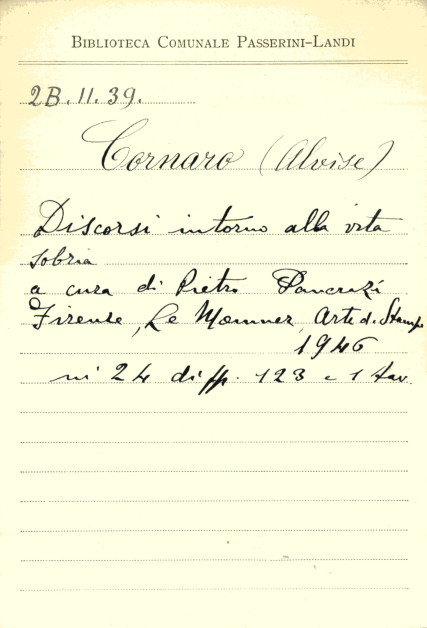 BIBLIOTECA COMUNALE PASSERINI-LANDI
2B.II.39.
Cornaro (Alvise)
Discorsi intorno alla vita
sobria
a cura di Pietro Pancrazi
Firenze, Le Monnier, Arte d. Stampa
1946
in 24 di pp. 123 e 1 tav.